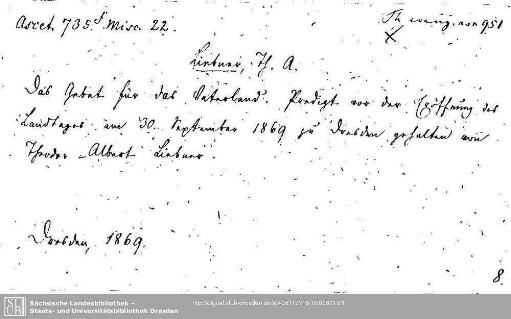 Ascet. 735. f Misc. 22.
Th. evang. 951
Liebner, Th. A.
Das Gebet für das Vaterland. Predigt vor der Eröffnung des
Landtages am 30. September 1869 zu Dresden gehalten von
Theodor Albert Liebner.
Dresden, 1869.
8.
Sächsische Landesbibliothek –
Staats- und Universitätsbibliothek Dresden